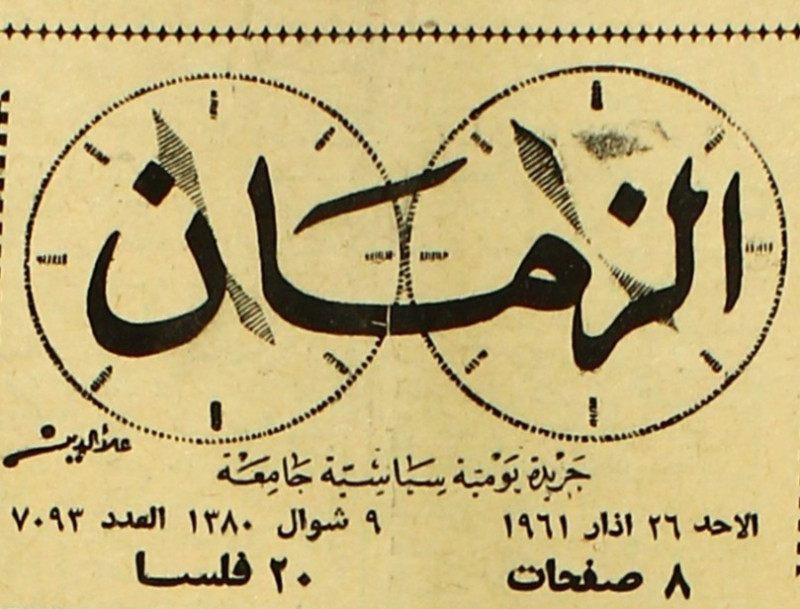 الزمان
علاءالدين
جَريدة يَوميّة سِيَاسيّة جَامِعَة
الاحد ٢٦ اذار ١٩٦١ ٩ شوال ١٣٨٠ العدد ٧٠٩٣
٨ صفحات ٢٠ فلسا